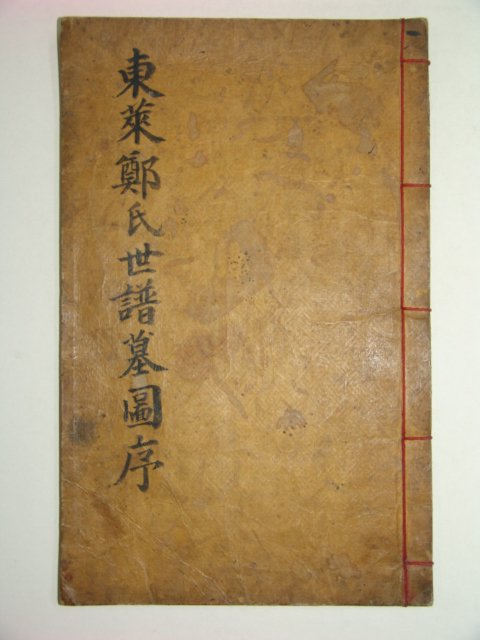 東萊鄭氏世譜墓圖序